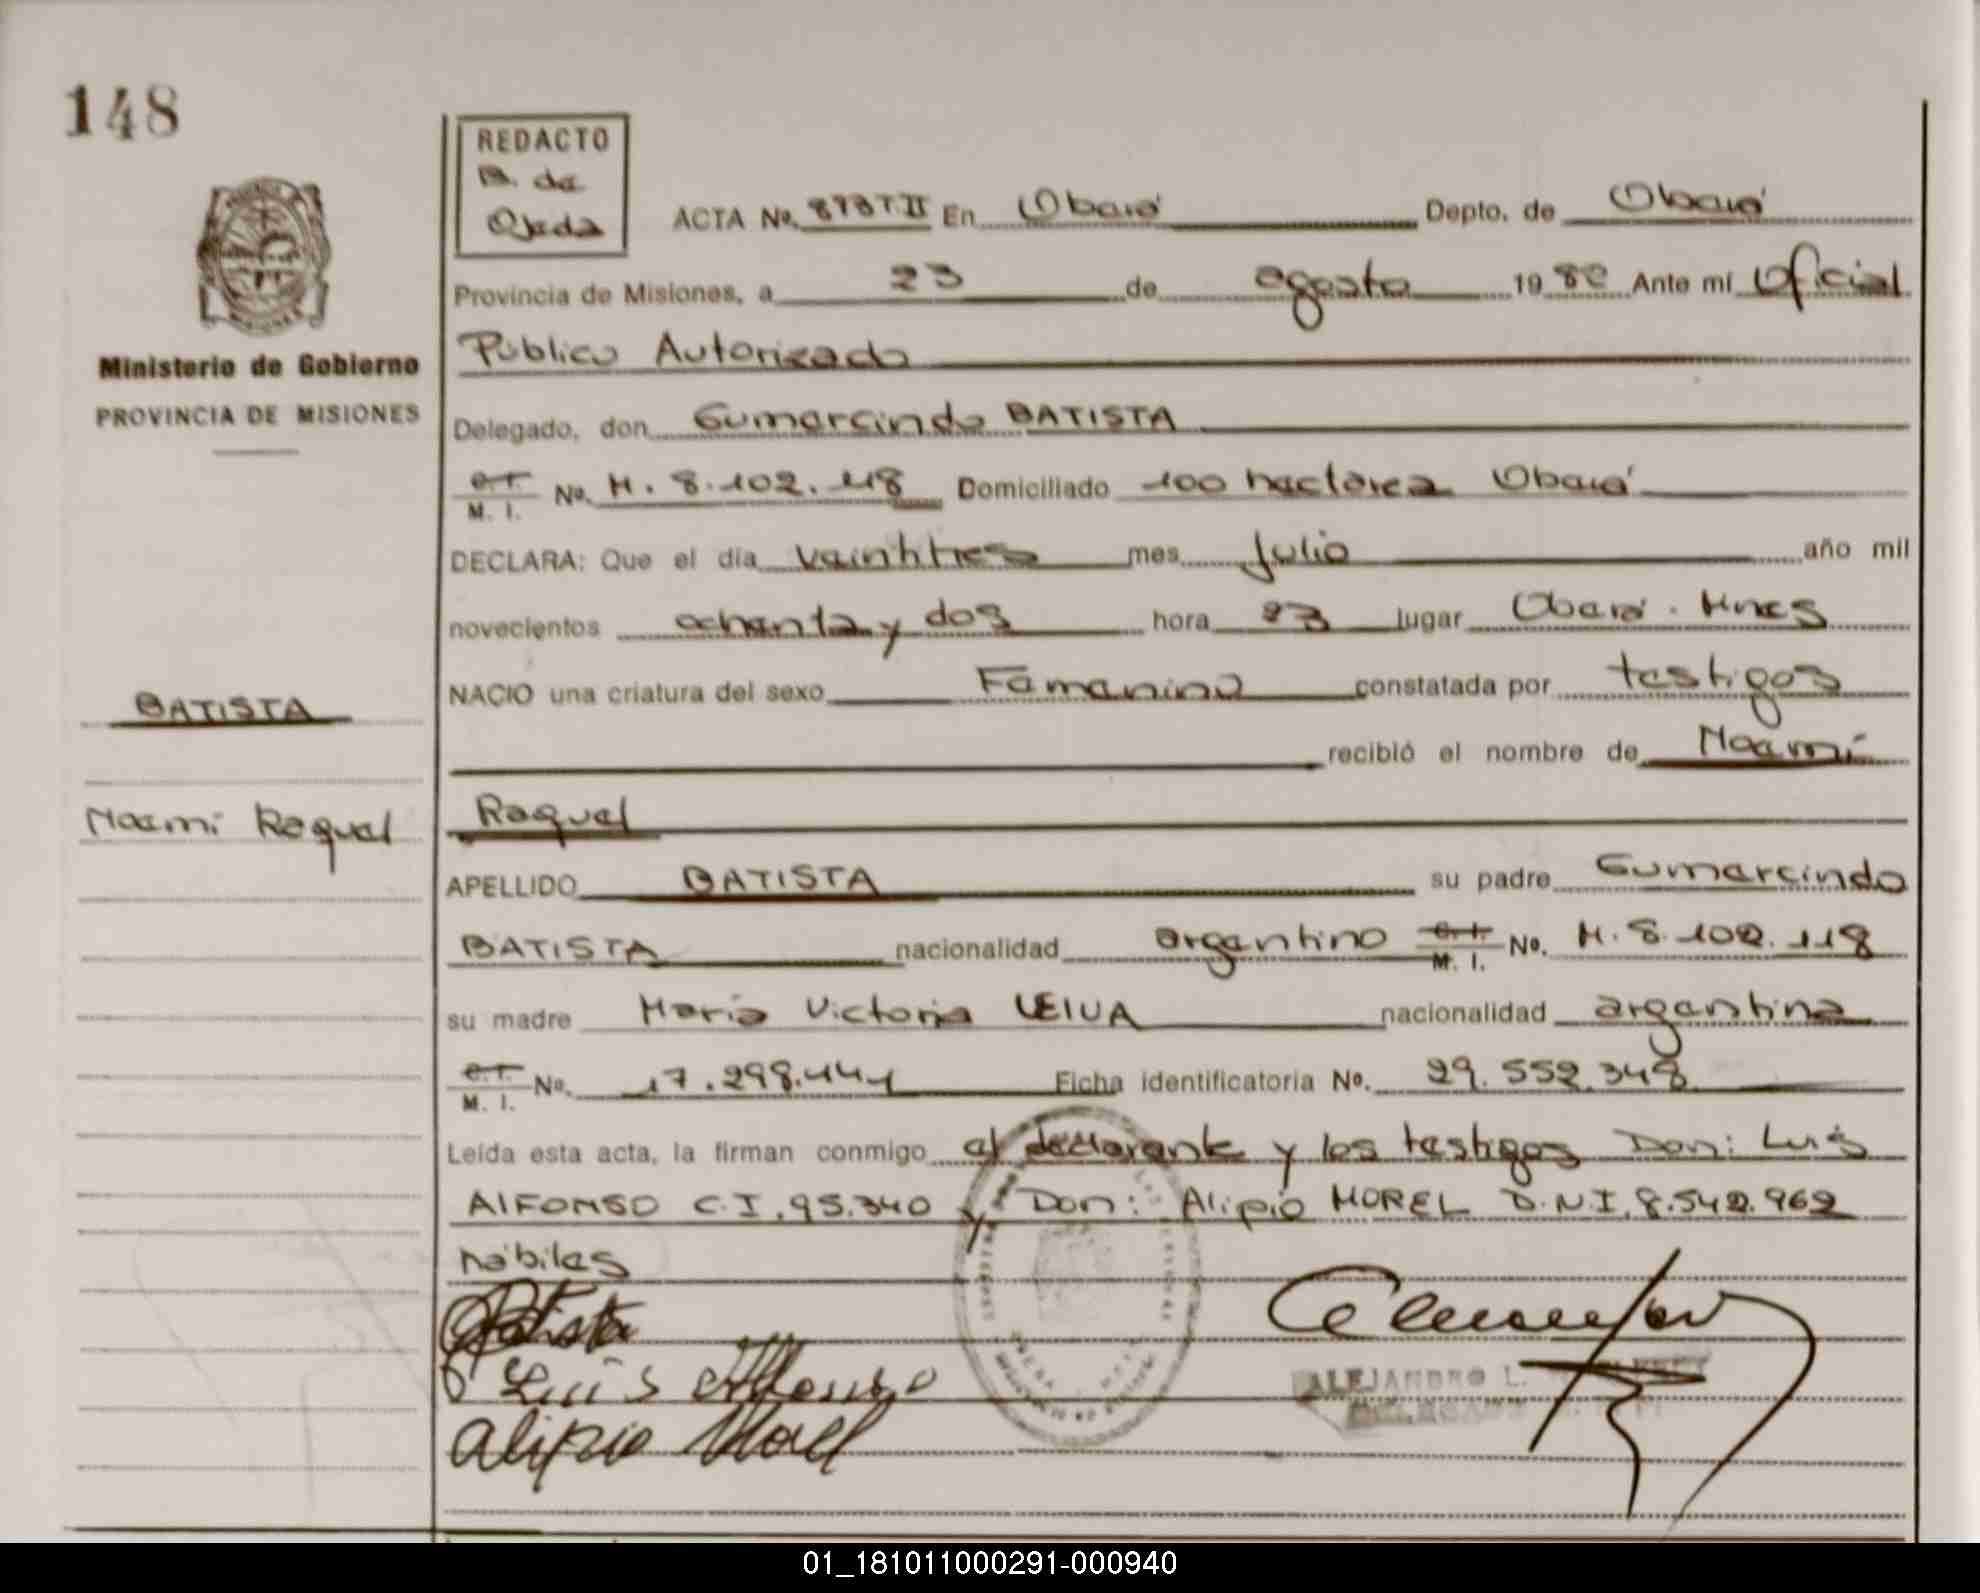 148
REDACTO
B. de
Ojeda
ACTA No. 873 T. II En Oberá Depto. de Oberá
Provincia de Misiones, a 23 de agosto 1982 Ante mí Oficial
Público Autorizado
Ministerio de Gobierno
PROVINCIA DE MISIONES
Delegado, don Gumercindo BATISTA
C.I. M. I. No. M. 8.102.118 Domiciliado 100 hectárea Oberá
DECLARA: Que el día veintitres mes Julio año mil
novecientos ochenta y dos hora 23 lugar Oberá. Mnes
NACIO una criatura del sexo Femenino constatada por testigos
BATISTA
recibió el nombre de Noemí
Noemí Raquel
Raquel
APELLIDO BATISTA su padre Gumercindo
BATISTA nacionalidad argentino C.I. M. I. No. M. 8.102.118
su madre María Victoria LEIVA nacionalidad argentina
C.I. M. I. No. 17.298.441 Ficha identificatoria No. 29.552.348
Leída esta acta, la firman conmigo el declarante y los testigos Don: Luis
AlFONSO C.I. 95.340 y Don: Alipio MOREL D.N.I. 8.542.962
hábiles
Batista
Luis Alfonso
Alipio Morel
ALEJANDRO L.
01_181011000291-000940